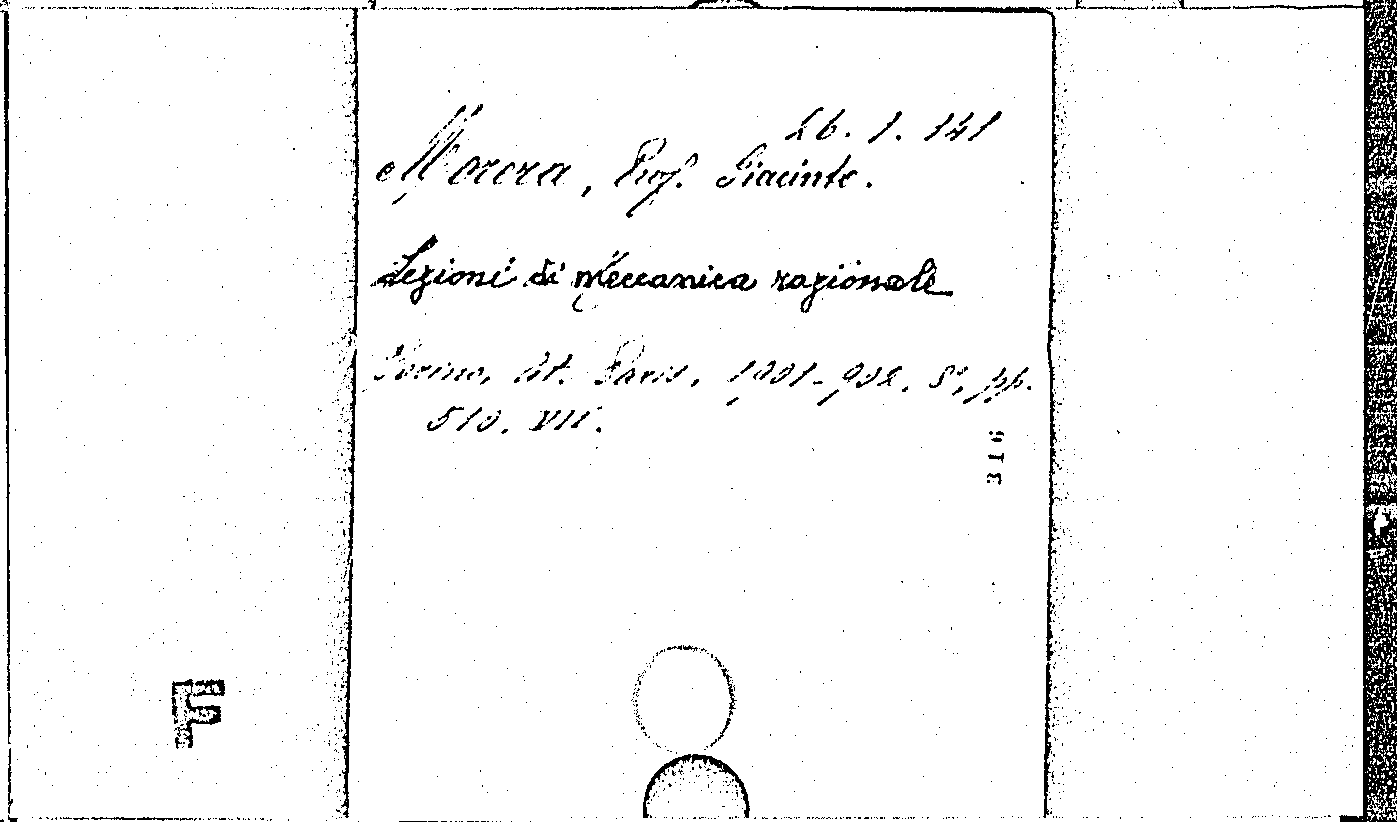 26. 1. 141
Morera, Prof. Giacinto.
Lezioni di Meccanica razionale
Torino, lit. Paris, 1901-902, 8°, pp.
510. VII.
316
F